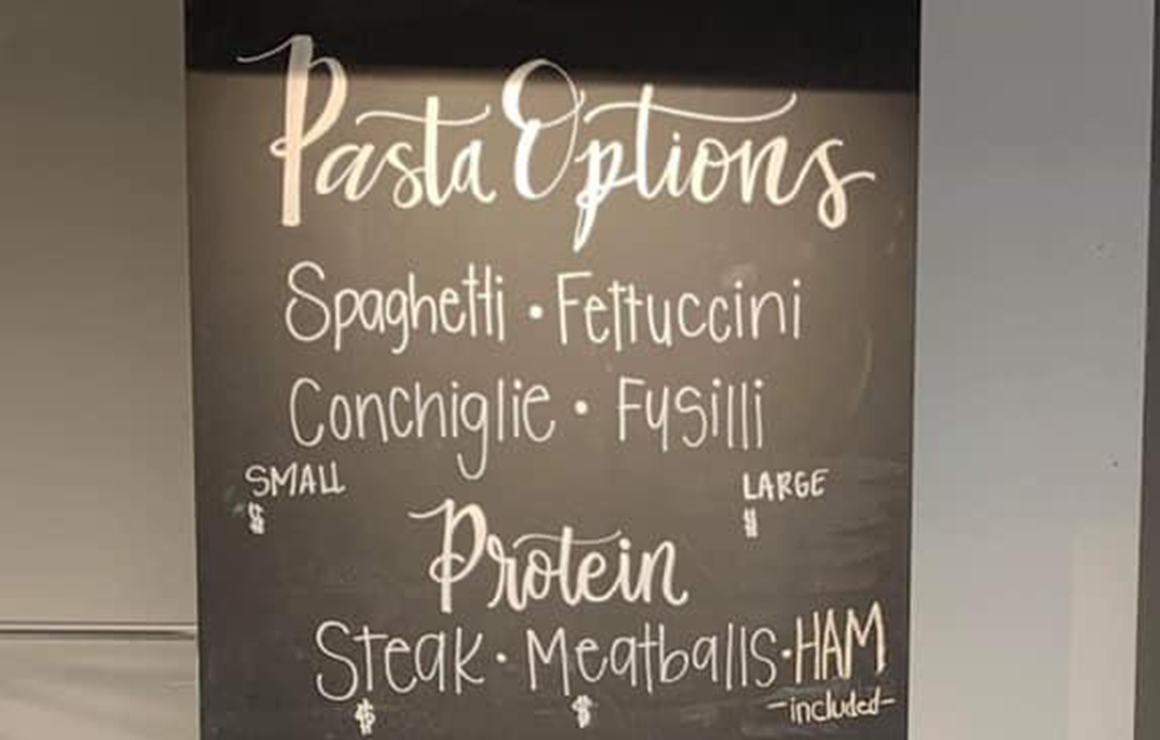 Pasta Options
Spaghetti • Fettuccini
Conchiglie • Fusilli
SMALL LARGE
$ $
Protein
Steak • Meatballs • HAM
$ $ -included-